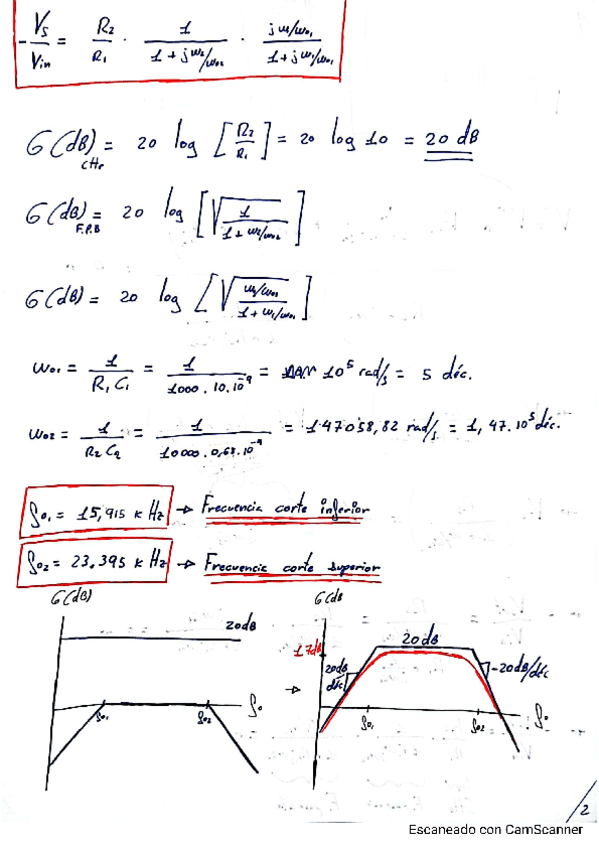 -Vs/Vin = R2/R1 · 1/(1 + jw2/w02) · (jw/w01)/(1 + jw1/w01)
G(dB)CHr = 20 log [R2/R1] = 20 log 10 = 20 dB
G(dB)F.P.B = 20 log [√(1/(1 + w2/w02))]
G(dB) = 20 log [√((w1/w01)/(1 + w1/w01))]
w01 = 1/(R1 C1) = 1/(1000 . 10.10^-9) = 10^5 rad/s = 5 déc.
w02 = 1/(R2 C2) = 1/(10000 . 0,68.10^-9) = 147058,82 rad/s = 1,47.10^5 déc.
fo1 = 15,915 kHz → Frecuencia corte inferior
fo2 = 23.395 kHz → Frecuencia corte superior
G(dB) G(dB
20dB 20dB
17dB
20dB/déc -20dB/déc
fo1 fo2 fo → fo1 fo2 fo
/2
Escaneado con CamScanner